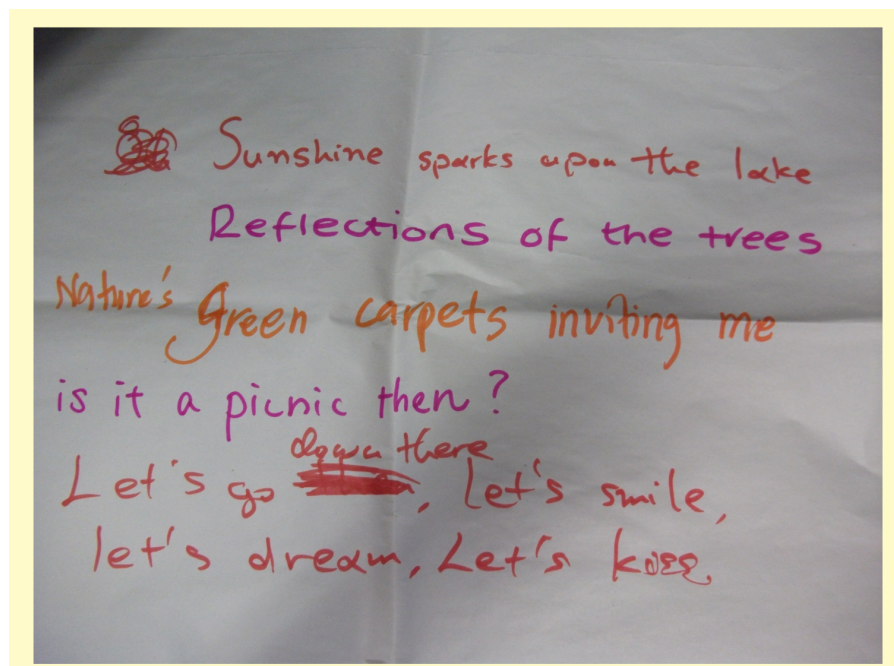 Sunshine sparks upon the lake
Reflections of the trees
Nature's green carpets inviting me
is it a picnic then?
Let's go down there, Let's smile,
let's dream, Let's